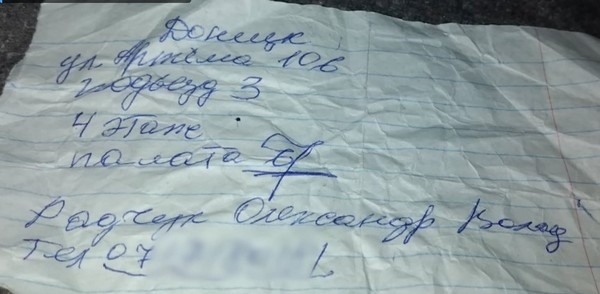 Донецк
ул Артёма 106
подъезд 3
4 этаж
палата
Радчук Олександр Волод
Тел 07